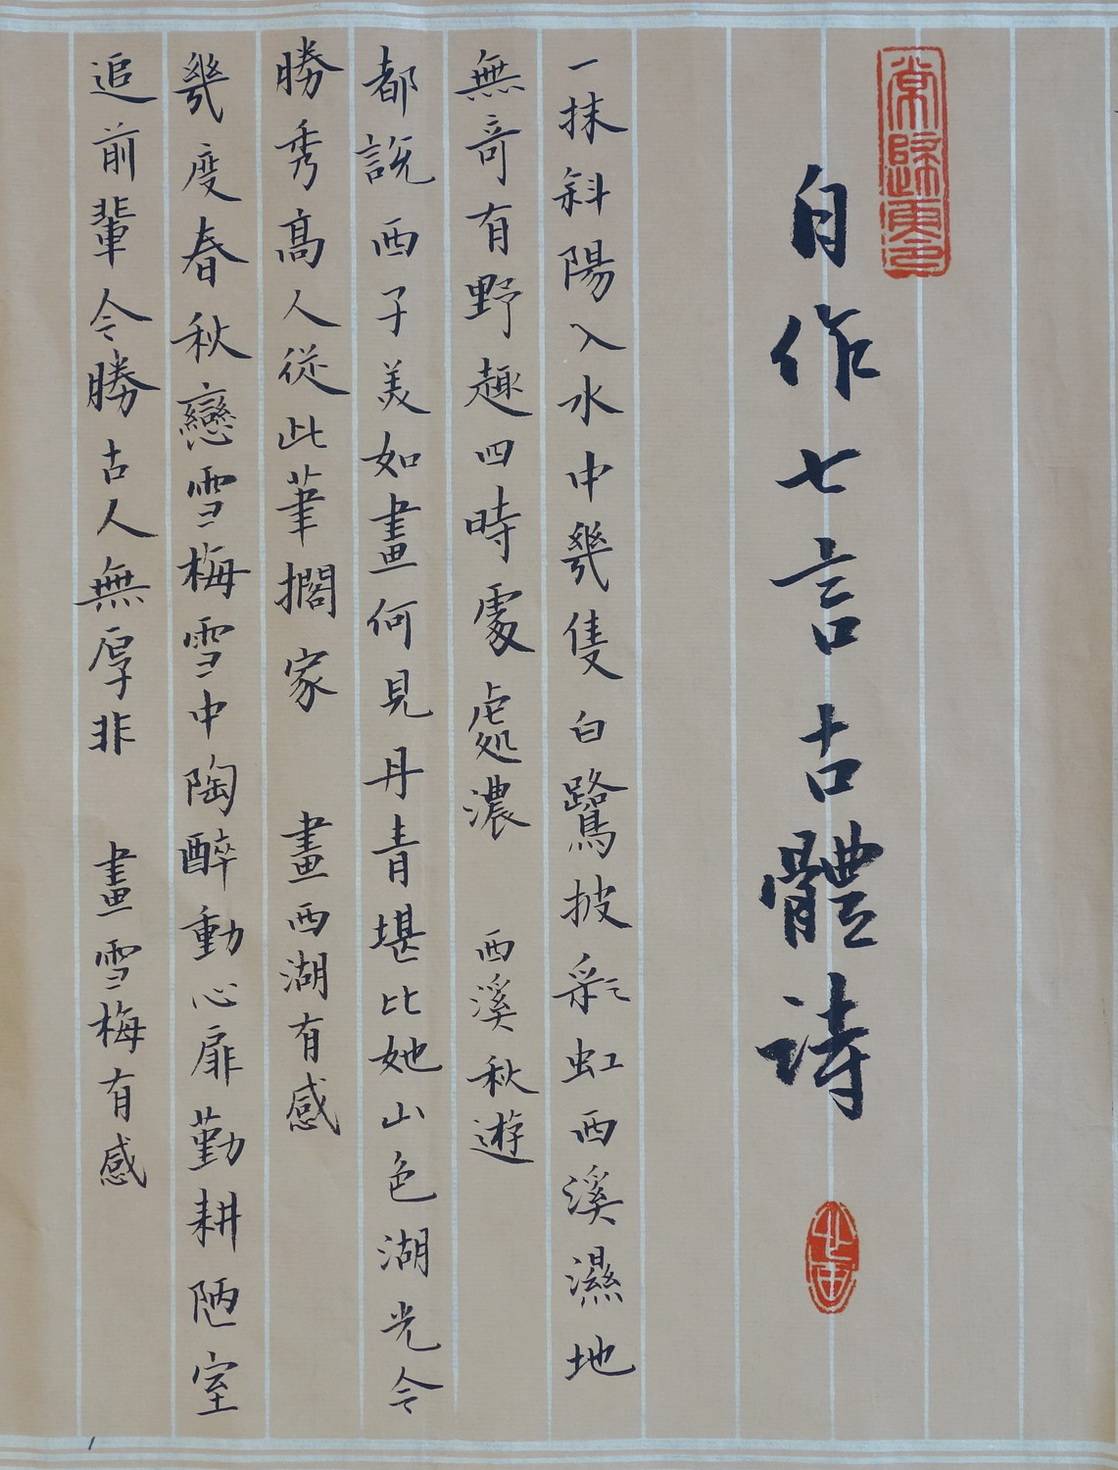 自作七言古體詩
一抹斜陽入水中幾隻白鷺披彩虹西溪濕地
無奇有野趣四時處處濃 西溪秋遊
都說西子美如畫何見丹青堪比她山色湖光今
勝秀高人從此筆擱家 畫西湖有感
幾度春秋戀雪梅雪中陶醉動心扉勤耕陋室
追前輩今勝古人無厚非 畫雪梅有感